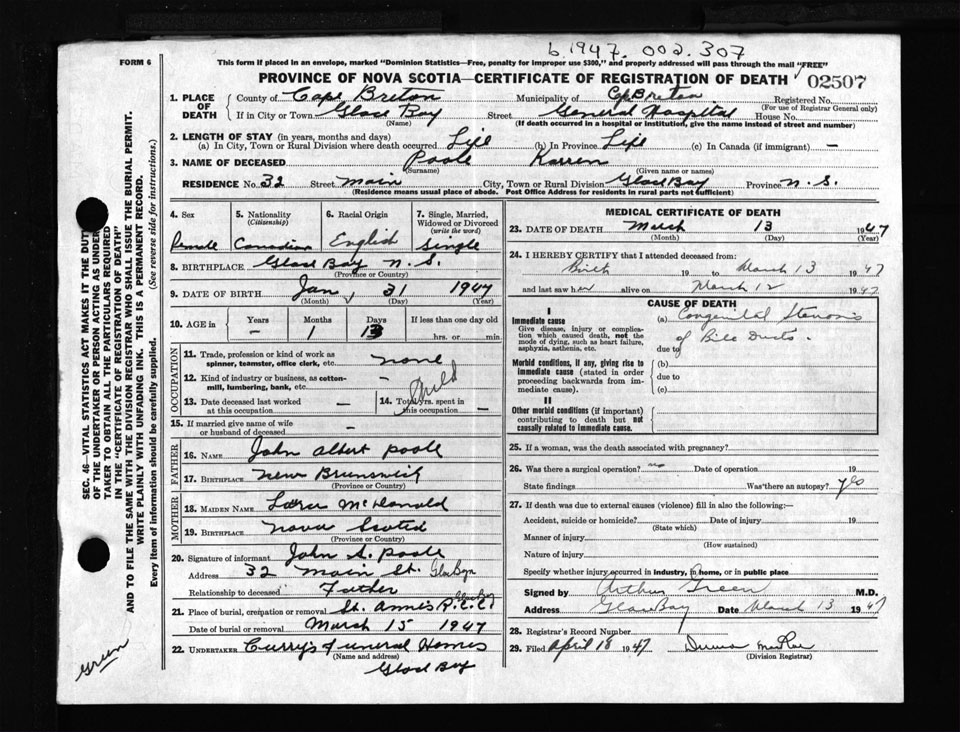 b. 1947. 002. 307
FORM 6
This form if placed in an envelope, marked "Dominion Statistics—Free, penalty for improper use $300," and properly addressed will pass through the mail "FREE"
PROVINCE OF NOVA SCOTIA—CERTIFICATE OF REGISTRATION OF DEATH 02507
1. PLACE OF DEATH County of Cape Breton Municipality of C. Breton Registered No.
(For use of Registrar General only)
If in City or Town Glace Bay Street General Hospital House No.
(Name) (If death occurred in a hospital or institution, give the name instead of street and number)
2. LENGTH OF STAY (in years, months and days)
(a) In City, Town or Rural Division where death occurred Life (b) In Province Life (c) In Canada (if immigrant) —
3. NAME OF DECEASED Poole Karren
(Surname) (Given name or names)
RESIDENCE No. 32 Street Main City, Town or Rural Division Glace Bay Province N. S.
(Residence means usual place of abode. Post Office Address for residents in rural parts not sufficient)
4. Sex Female
5. Nationality (Citizenship) Canadian
6. Racial Origin English
7. Single, Married, Widowed or Divorced (write the word) Single
8. BIRTHPLACE Glace Bay N. S.
(Province or Country)
9. DATE OF BIRTH Jan 31 1947
(Month) (Day) (Year)
10. AGE in Years Months Days If less than one day old
— 1 13 hrs. or min.
OCCUPATION
11. Trade, profession or kind of work as spinner, teamster, office clerk, etc. none
12. Kind of industry or business, as cotton-mill, lumbering, bank, etc. —
13. Date deceased last worked at this occupation —
14. Total yrs. spent in this occupation —
Child
15. If married give name of wife or husband of deceased —
FATHER
16. NAME John Albert Poole
17. BIRTHPLACE New Brunswick
(Province or Country)
MOTHER
18. MAIDEN NAME McDonald
19. BIRTHPLACE Nova Scotia
(Province or Country)
20. Signature of informant John A. Poole
Address 32 Main St. Glace Bay
Relationship to deceased Father
21. Place of burial, cremation or removal St. Anne's Glace Bay
Date of burial or removal March 15 1947
22. UNDERTAKER Curry's Funeral Homes
(Name and address)
Glace Bay
MEDICAL CERTIFICATE OF DEATH
23. DATE OF DEATH March 13 1947
(Month) (Day) (Year)
24. I HEREBY CERTIFY that I attended deceased from:
Birth 19 to March 13 1947
and last saw her alive on March 12 1947
CAUSE OF DEATH
I
Immediate cause (a) Congenital Stenosis
Give disease, injury or complication which caused death, not the mode of dying, such as heart failure, asphyxia, asthenia, etc.
of Bile Ducts.
due to
Morbid conditions, if any, giving rise to immediate cause (stated in order proceeding backwards from immediate cause).
(b)
due to
(c)
II
Other morbid conditions (if important) contributing to death but not causally related to immediate cause.
25. If a woman, was the death associated with pregnancy?
26. Was there a surgical operation? no Date of operation 19
State findings Was there an autopsy? yes
27. If death was due to external causes (violence) fill in also the following:—
Accident, suicide or homicide? Date of injury 19
(State which)
Manner of injury
(How sustained)
Nature of injury
Specify whether injury occurred in industry, in home, or in public place
Signed by Arthur Green M.D.
Address Glace Bay Date March 13 1947
28. Registrar's Record Number
29. Filed April 18 1947
(Division Registrar)
SEC. 46—VITAL STATISTICS ACT MAKES IT THE DUTY
OF THE UNDERTAKER OR PERSON ACTING AS UNDER-
TAKER TO OBTAIN ALL THE PARTICULARS REQUIRED
IN THE "CERTIFICATE OF REGISTRATION OF DEATH"
AND TO FILE THE SAME WITH THE DIVISION REGISTRAR WHO SHALL ISSUE THE BURIAL PERMIT.
WRITE PLAINLY WITH UNFADING INK. THIS IS A PERMANENT RECORD.
Every item of information should be carefully supplied. (See reverse side for instructions.)
Green